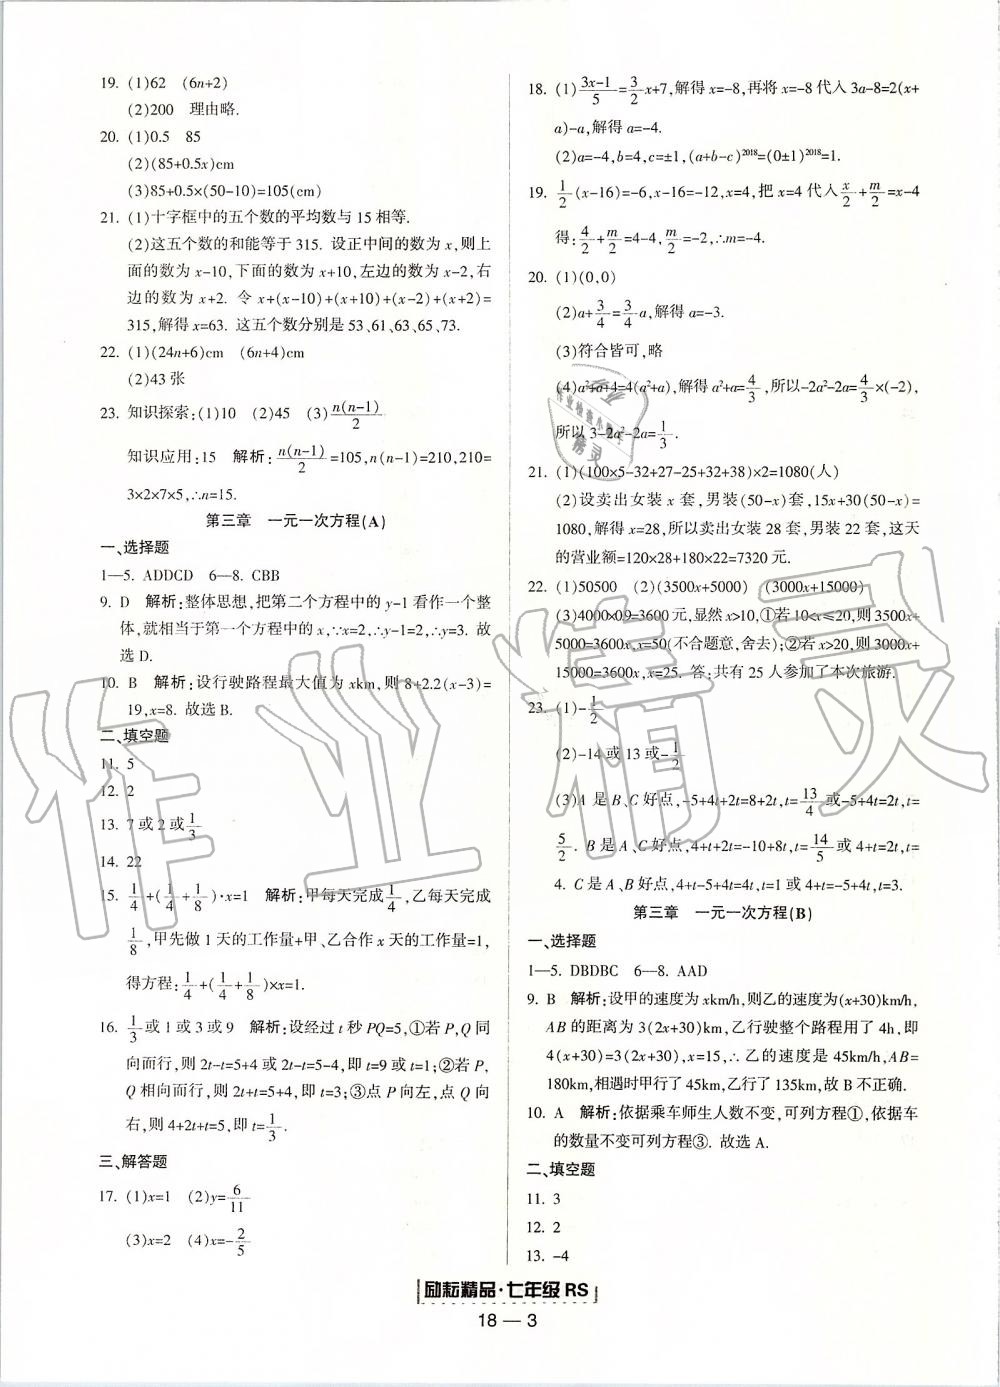 19. (1)62 (6n+2)
(2)200 理由略.
20. (1)0.5 85
(2)(85+0.5x)cm
(3)85+0.5×(50-10)=105(cm)
21. (1)十字框中的五个数的平均数与 15 相等.
(2)这五个数的和能等于 315. 设正中间的数为 x,则上
面的数为 x-10,下面的数为 x+10,左边的数为 x-2,右
边的数为 x+2. 令 x+(x-10)+(x+10)+(x-2)+(x+2)=
315,解得 x=63. 这五个数分别是 53、61、63、65、73.
22. (1)(24n+6)cm (6n+4)cm
(2)43 张
23. 知识探索:(1)10 (2)45 (3)n(n-1)/2
知识应用:15 解析:n(n-1)/2=105,n(n-1)=210,210=
3×2×7×5,∴n=15.
第三章 一元一次方程(A)
一、选择题
1—5. ADDCD 6—8. CBB
9. D 解析:整体思想,把第二个方程中的 y-1 看作一个整
体,就相当于第一个方程中的 x,∵x=2,∴y-1=2,∴y=3. 故
选 D.
10. B 解析:设行驶路程最大值为 xkm,则 8+2.2(x-3)=
19,x=8. 故选 B.
二、填空题
11. 5
12. 2
13. 7 或 2 或1/3
14. 22
15. 1/4+(1/4+1/8)·x=1 解析:甲每天完成1/4,乙每天完成
1/8,甲先做 1 天的工作量+甲、乙合作 x 天的工作量=1,
得方程:1/4+(1/4+1/8)×x=1.
16. 1/3或 1 或 3 或 9 解析:设经过 t 秒 PQ=5,①若 P,Q 同
向而行,则 2t-t=5+4 或 2t-t=5-4,即 t=9 或 t=1;②若 P,
Q 相向而行,则 2t+t=5+4,即 t=3;③点 P 向左,点 Q 向
右,则 4+2t+t=5,即 t=1/3.
三、解答题
17. (1)x=1 (2)y=6/11
(3)x=2 (4)x=-2/5
18. (1)3x-1/5=3/2x+7,解得 x=-8,再将 x=-8 代入 3a-8=2(x+
a)-a,解得 a=-4.
(2)a=-4,b=4,c=±1,(a+b-c)²⁰¹⁸=(0±1)²⁰¹⁸=1.
19. 1/2(x-16)=-6,x-16=-12,x=4,把 x=4 代入x/2+m/2=x-4
得:4/2+m/2=4-4,m/2=-2,∴m=-4.
20. (1)(0,0)
(2)a+3/4=3/4a,解得 a=-3.
(3)符合皆可,略
(4)a²+a+4=4(a²+a),解得 a²+a=4/3,所以-2a²-2a=4/3×(-2),
所以 3-2a²-2a=1/3.
21. (1)(100×5-32+27-25+32+38)×2=1080(人)
(2)设卖出女装 x 套,男装(50-x)套,15x+30(50-x)=
1080,解得 x=28,所以卖出女装 28 套,男装 22 套,这天
的营业额=120×28+180×22=7320 元.
22. (1)50500 (2)(3500x+5000) (3000x+15000)
(3)4000×0.9=3600 元,显然 x>10,①若 10<x≤20,则 3500x+
5000=3600x,x=50(不合题意,舍去);②若 x>20,则 3000x+
15000=3600x,x=25. 答:共有 25 人参加了本次旅游.
23. (1)-1/2
(2)-14 或 13 或-1/2
(3)A 是 B、C 好点,-5+4t+2t=8+2t,t=13/4 或-5+4t=2t,t=
5/2. B 是 A、C 好点,4+t+2t=-10+8t,t=14/5 或 4+t=2t,t=
4. C 是 A、B 好点,4+t-5+4t=4t,t=1 或 4+t=-5+4t,t=3.
第三章 一元一次方程(B)
一、选择题
1—5. DBDBC 6—8. AAD
9. B 解析:设甲的速度为 xkm/h,则乙的速度为(x+30)km/h,
AB 的距离为 3(2x+30)km,乙行驶整个路程用了 4h,即
4(x+30)=3(2x+30),x=15,∴ 乙的速度是 45km/h,AB=
180km,相遇时甲行了 45km,乙行了 135km,故 B 不正确.
10. A 解析:依据乘车师生人数不变,可列方程①,依据车
的数量不变可列方程③. 故选 A.
二、填空题
11. 3
12. 2
13. -4
励耘精品·七年级 RS
18 — 3
作业精灵